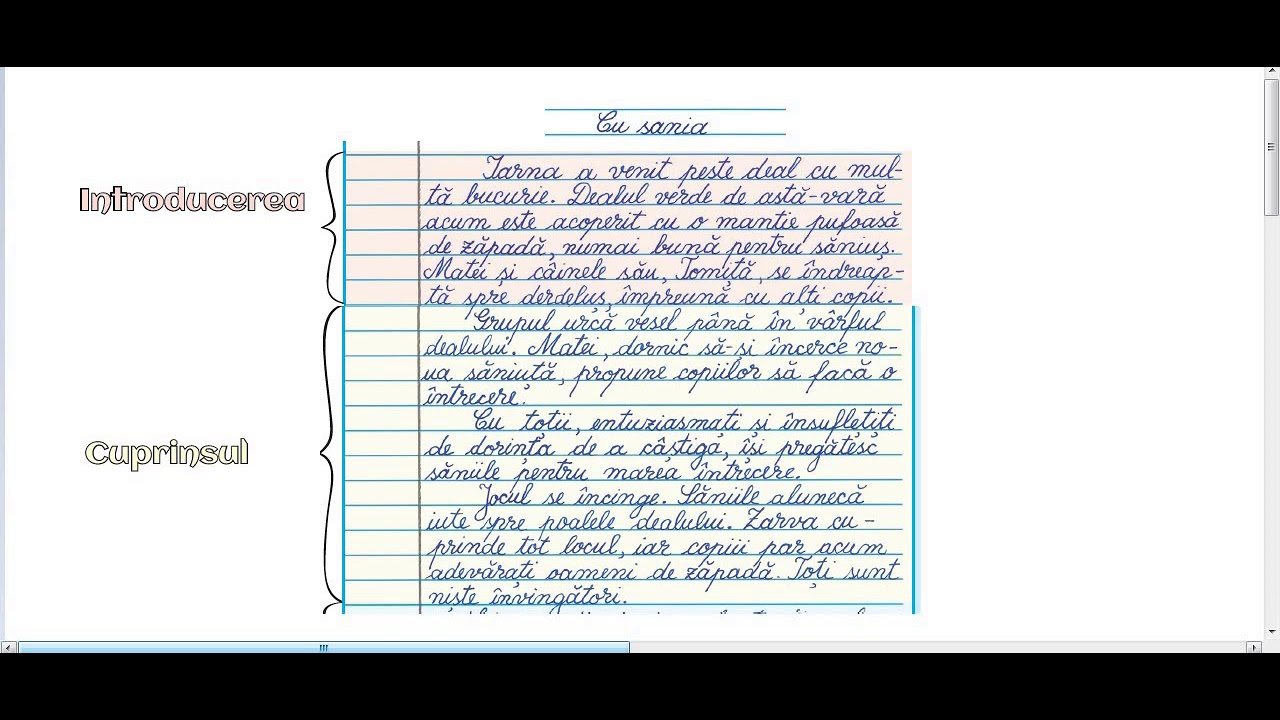 Cu sania
Introducerea
Iarna a venit peste deal cu mul-
tă bucurie. Dealul verde de astă-vară
acum este acoperit cu o mantie pufoasă
de zăpadă, numai bună pentru săniuș.
Matei și câinele său, Tomiță, se îndreap-
tă spre derdeluș, împreună cu alți copii.
Cuprinsul
Grupul urcă vesel până în vârful
dealului. Matei, dornic să-și încerce no-
ua săniuță, propune copiilor să facă o
întrecere.
Cu toții, entuziasmați și însuflețiți
de dorința de a câștiga, își pregătesc
săniile pentru marea întrecere.
Jocul se încinge. Săniile alunecă
iute spre poalele dealului. Zarva cu-
prinde tot locul, iar copiii par acum
adevărați oameni de zăpadă. Toți sunt
niște învingători.